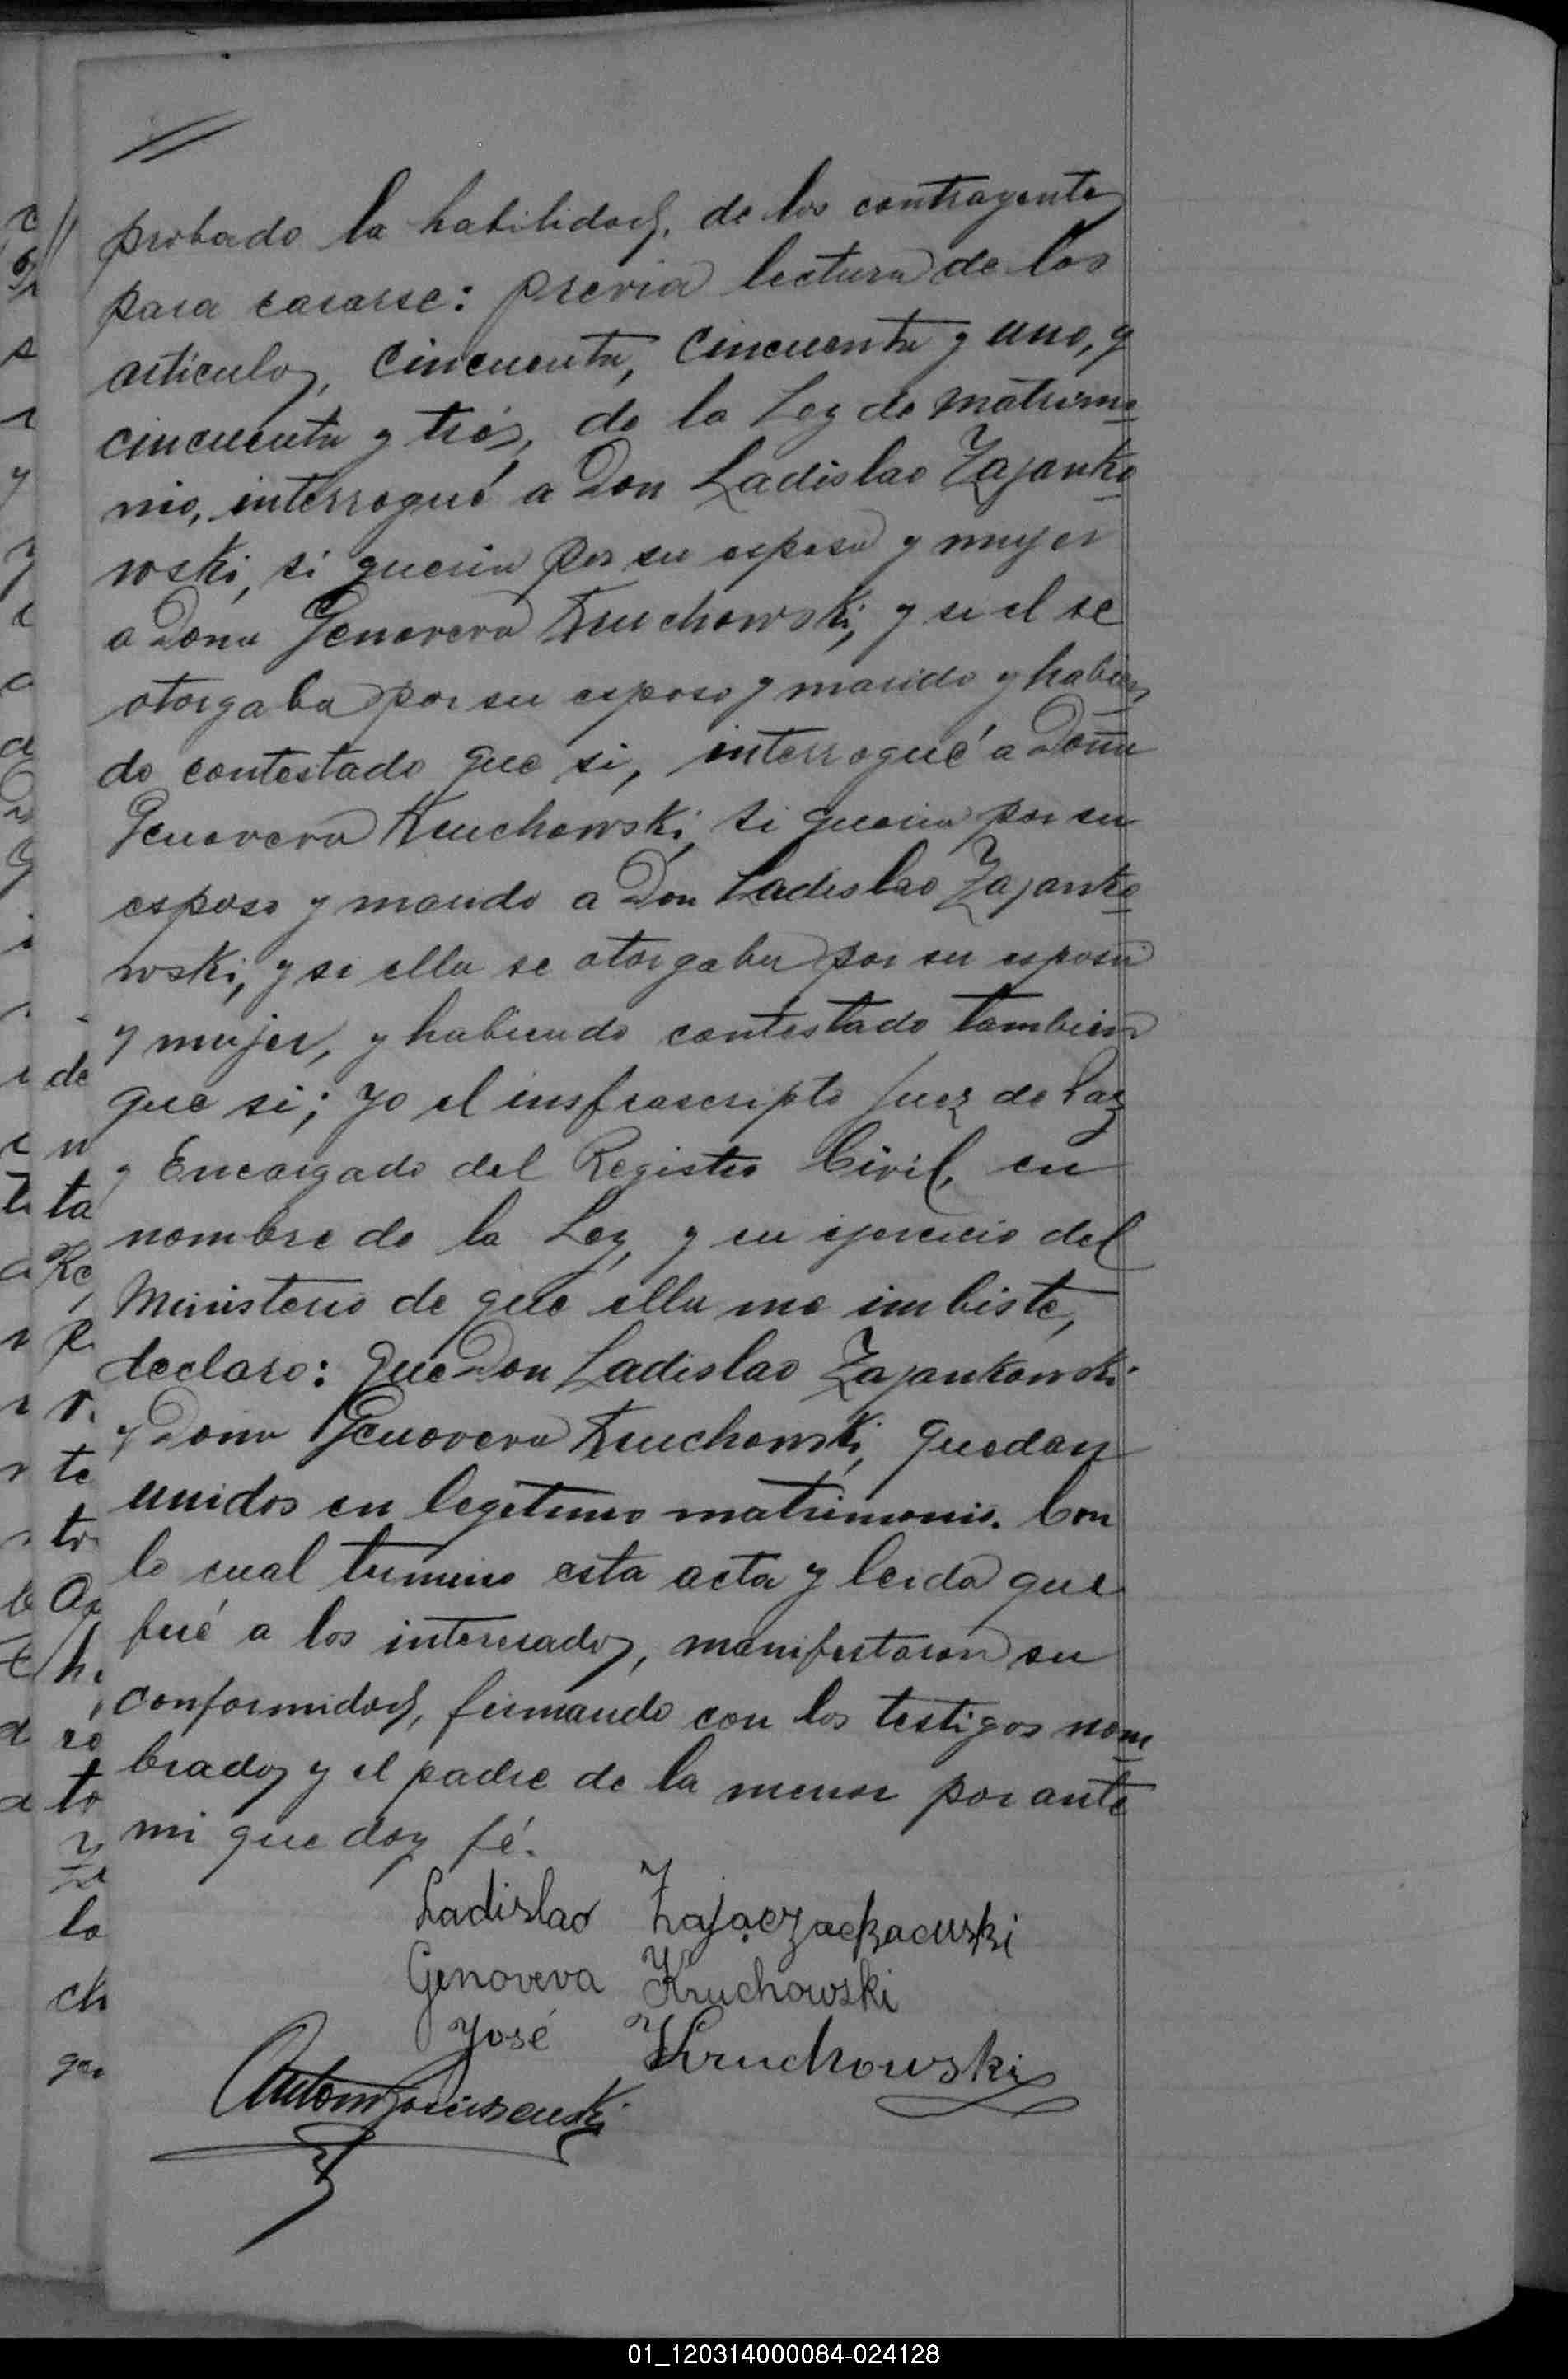 //
probado la habilidad, de los contrayentes
para casarse: previa lectura de los
articulos, cincuenta, cincuenta y uno, y
cincuenta y trés, de la Ley de matrimo
nio, interrogué a Don Ladislao Zajanko
wski, si queria por su esposa y mujer
a Dona Genoveva Kruchowski, y si el se
otorgaba por su esposo y marido y habien
do contestado que si, interrogué a Doña
Genoveva Kruchowski, si queria por su
esposo y marido a Don Ladislao Zajanko
wski, y si ella se otorgaba por su esposa
y mujer, y habiendo contestado tambien
que si; Yo el insfrascripto Juez de Paz
y Encargado del Registro Civil, en
nombre de la Ley, y en ejercicio del
Ministerio de que ella me imbiste,
declaro: que Don Ladislao Zajankowski
y Dona Genoveva Kruchowski, quedan
unidos en legitimo matrimonio. Con
lo cual termino esta acta y leida que
fué a los interesados, manifestaron su
conformidad, firmando con los testigos nom
brados y el padre de la menor por ante
mi que doy fé.
Ladislao Zajaczackacuski
Genoveva Kruchowski
José Kruchowski
01_120314000084-024128